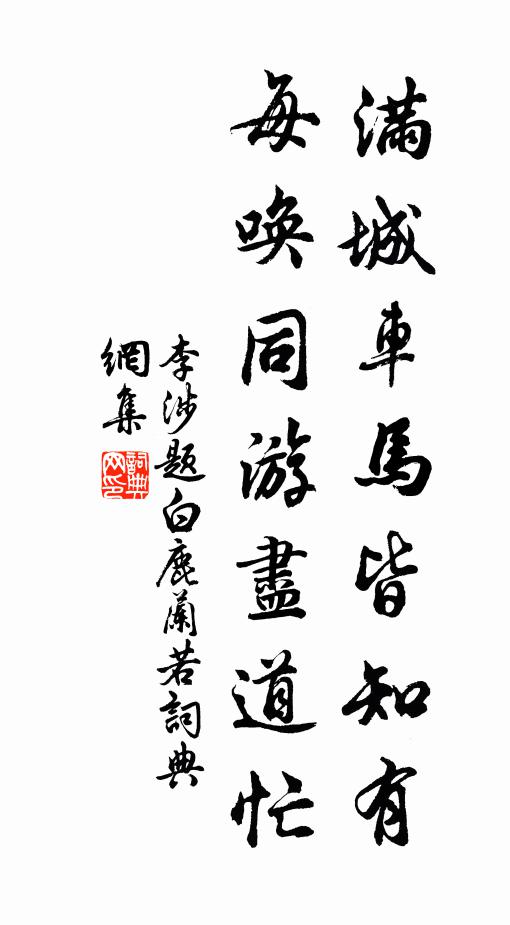 滿城車馬皆知有
每喚同游盡道忙
李涉題白鹿蘭若詞典
網集
詞典
网印